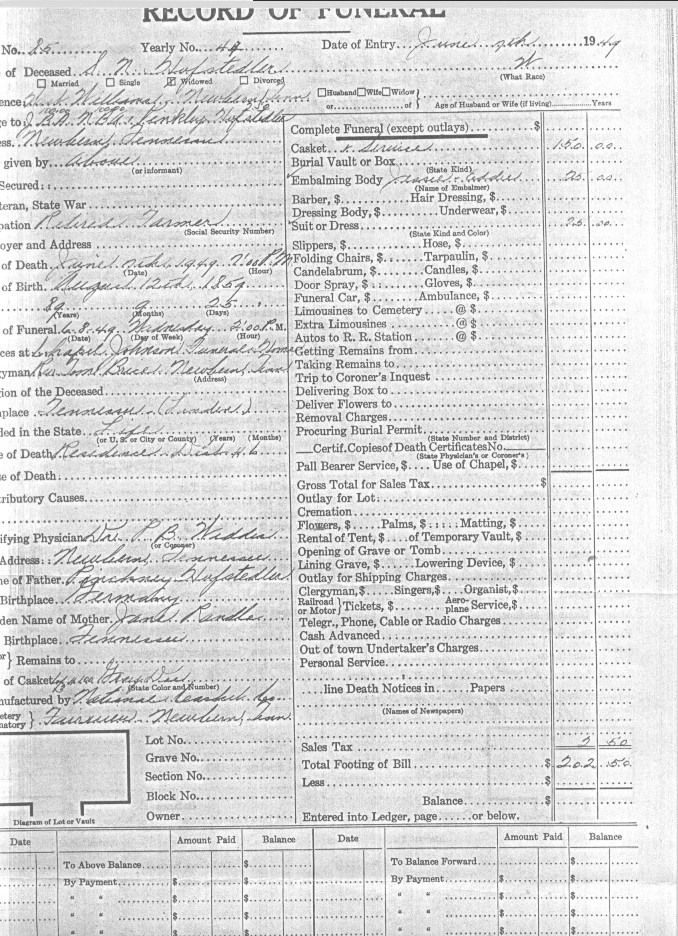 RECORD OF FUNERAL
No. 25 Yearly No. 44 Date of Entry June 7th 1949
of Deceased S. N. Hufstedler W
☐ Married ☐ Single ☒ Widowed ☐ Divorced (What Race)
☐Husband☐Wife☐Widow or of } Age of Husband or Wife (if living) Years
Newbern
ge to Hufstedler
ess. Newbern, Tennessee
given by above
(or informant)
Secured::
teran, State War
pation Retired Farmer
(Social Security Number)
oyer and Address
of Death June 1949 2:00 P.M
(Date) (Hour)
of Birth August 12th 1859
89 9 25
(Years) (Months) (Days)
of Funeral 6.8.49 Wednesday 2:00 P.M.
(Date) (Day of Week) (Hour)
ces at Chapel Johnson Funeral Home
gyman Rev Tom Newbern Tenn
(Address)
ion of the Deceased
nplace Tennessee (Linden)
ded in the State Life
(or U. S. or City or County) (Years) (Months)
e of Death Residence Dist. 46
se of Death:
tributory Causes
ifying Physician Dr. P. B. Widdis
(or Coroner)
Address:: Newbern, Tennessee
ne of Father Hufstedler
Birthplace Germany
den Name of Mother Jane
Birthplace Tennessee
or } Remains to
of Casket Gray
(State Color and Number)
nufactured by National Casket Co.
etery matory } Fairview Newbern, Tenn
Lot No.
Grave No.
Section No.
Block No.
Owner
Diagram of Lot or Vault
Complete Funeral (except outlays) $
Casket & Service 150 00
Burial Vault or Box
(State Kind)
Embalming Body 25 00
(Name of Embalmer)
Barber, $ Hair Dressing, $
Dressing Body, $ Underwear, $
Suit or Dress 25 00
(State Kind and Color)
Slippers, $ Hose, $
Folding Chairs, $ Tarpaulin, $
Candelabrum, $ Candles, $
Door Spray, $ Gloves, $
Funeral Car, $ Ambulance, $
Limousines to Cemetery @ $
Extra Limousines @ $
Autos to R. R. Station @ $
Getting Remains from
Taking Remains to
Trip to Coroner's Inquest
Delivering Box to
Deliver Flowers to
Removal Charges
Procuring Burial Permit
(State Number and District)
Certif.Copies of Death Certificates No.
(State Physician's or Coroner's)
Pall Bearer Service, $ Use of Chapel, $
Gross Total for Sales Tax $
Outlay for Lot:
Cremation
Flowers, $ Palms, $ Matting, $
Rental of Tent, $ of Temporary Vault, $
Opening of Grave or Tomb
Lining Grave, $ Lowering Device, $
Outlay for Shipping Charges
Clergyman, $ Singers, $ Organist, $
Railroad or Motor } Tickets, $ Aero-plane Service, $
Telegr., Phone, Cable or Radio Charges
Cash Advanced
Out of town Undertaker's Charges
Personal Service
line Death Notices in Papers
(Names of Newspapers)
Sales Tax 2 50
Total Footing of Bill $ 202 50
Less
Balance $
Entered into Ledger, page or below.
Date Amount Paid Balance Date Amount Paid Balance
To Above Balance $ To Balance Forward $
By Payment $ $ By Payment $ $
" " $ $ " " $ $
" " $ $ " " $ $
" " $ $ " " $ $